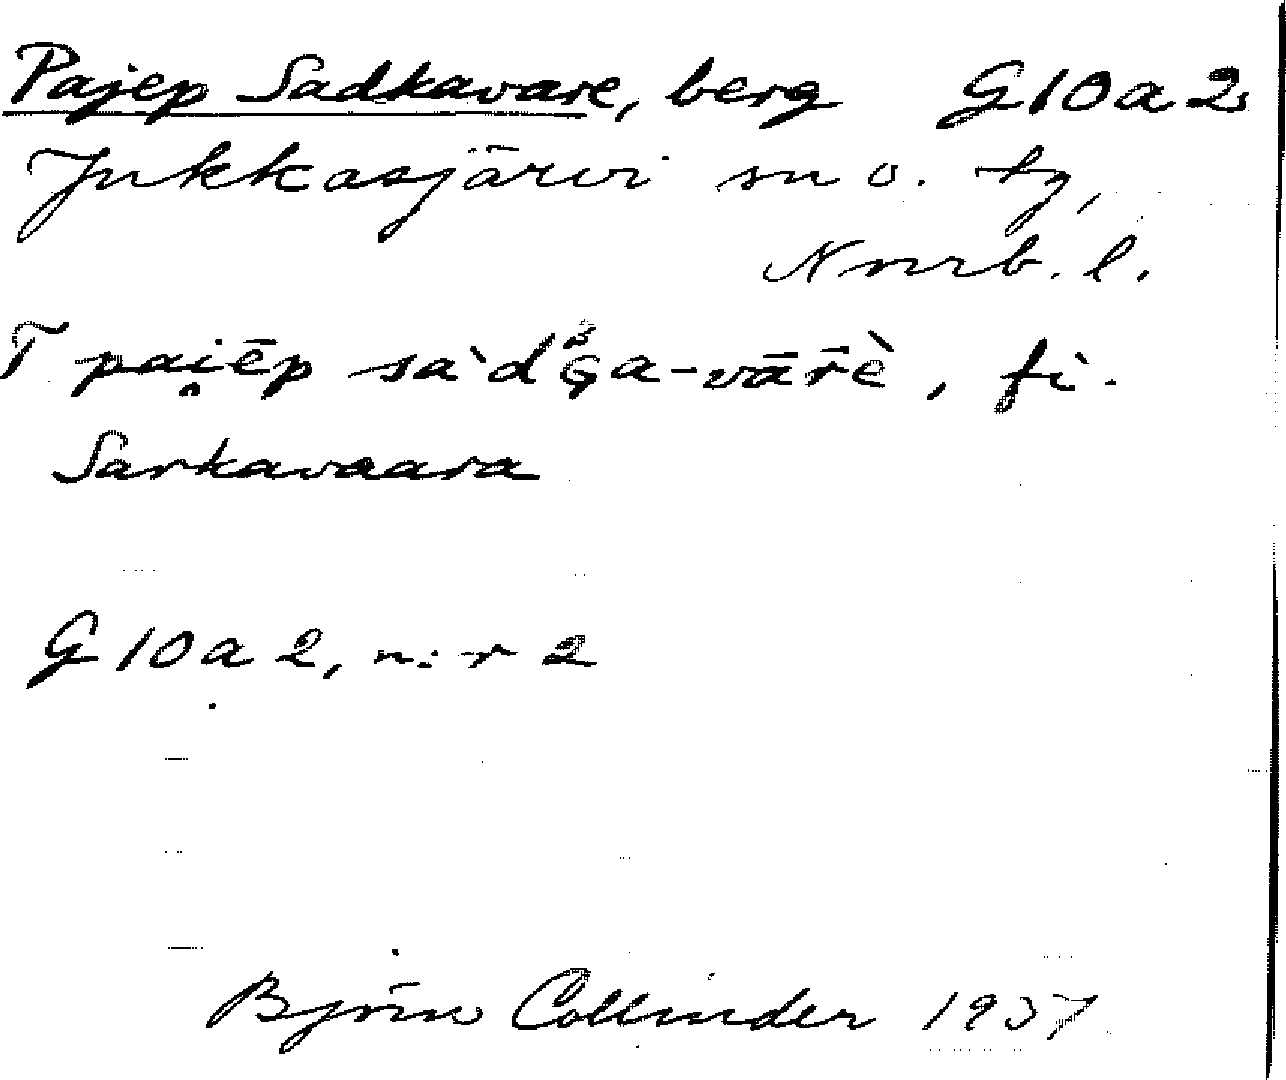 Pajep Sadkavare, berg G10a2
Jukkasjärvi sn o. tg,
Nnrb. l.
fi.
Sarkavaara
G10a2, n:r 2
Björn Collinder 1937